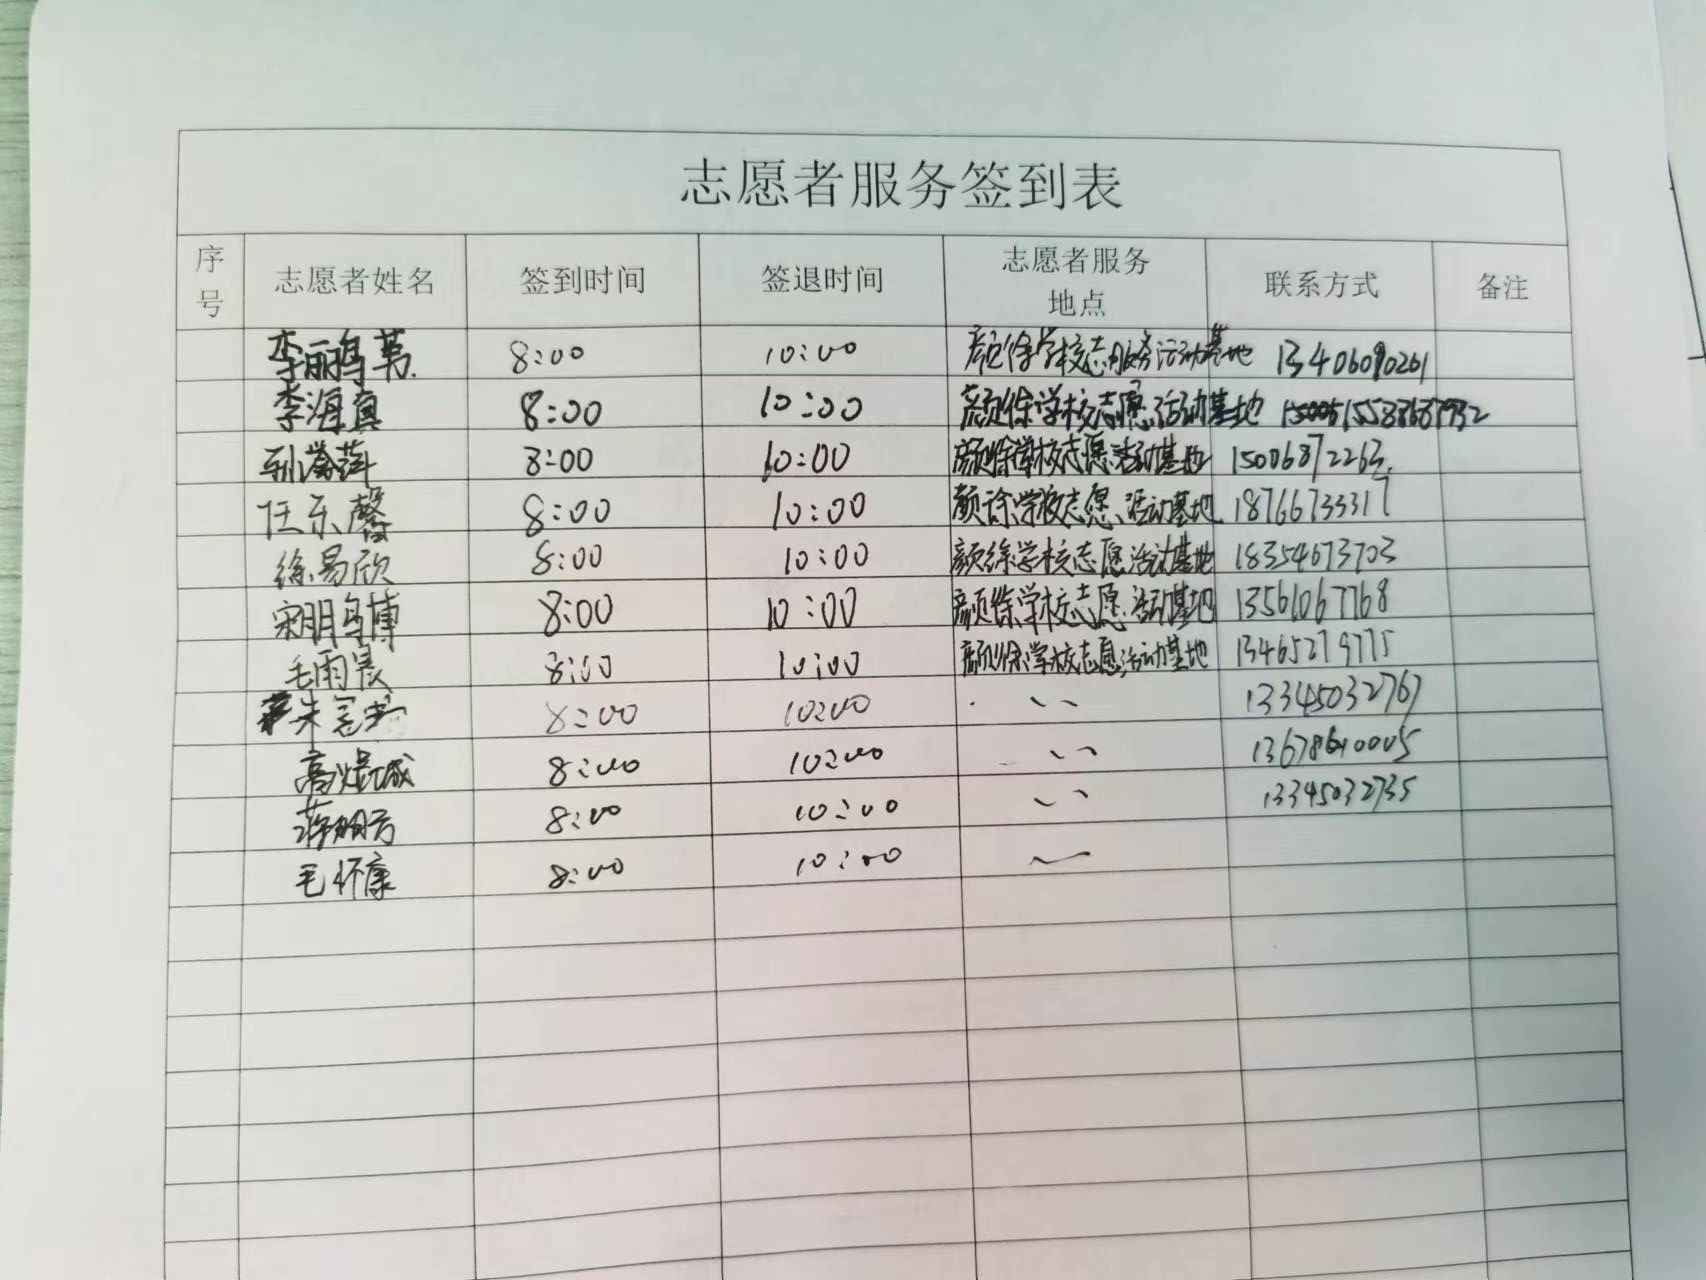 志愿者服务签到表
序号 志愿者姓名 签到时间 签退时间 志愿者服务地点 联系方式 备注
8:00 10:00 颜徐学校志服务活动基地 13406090261
李海真 8:00 10:00 颜徐学校志愿活动基地
孙滢萍 8:00 10:00 颜徐学校志愿活动基地 15006872263
任乐馨 8:00 10:00 颜徐学校志愿活动基地 18766733317
徐易欣 8:00 10:00 颜徐学校志愿活动基地 18354673703
宋明博 8:00 10:00 颜徐学校志愿活动基地 13561067768
毛雨晨 8:00 10:00 颜徐学校志愿活动基地 13465279775
朱 8:00 10:00 13345032767
高煜城 8:00 10:00 13678610005
蒋明 8:00 10:00 13345032735
毛怀康 8:00 10:00